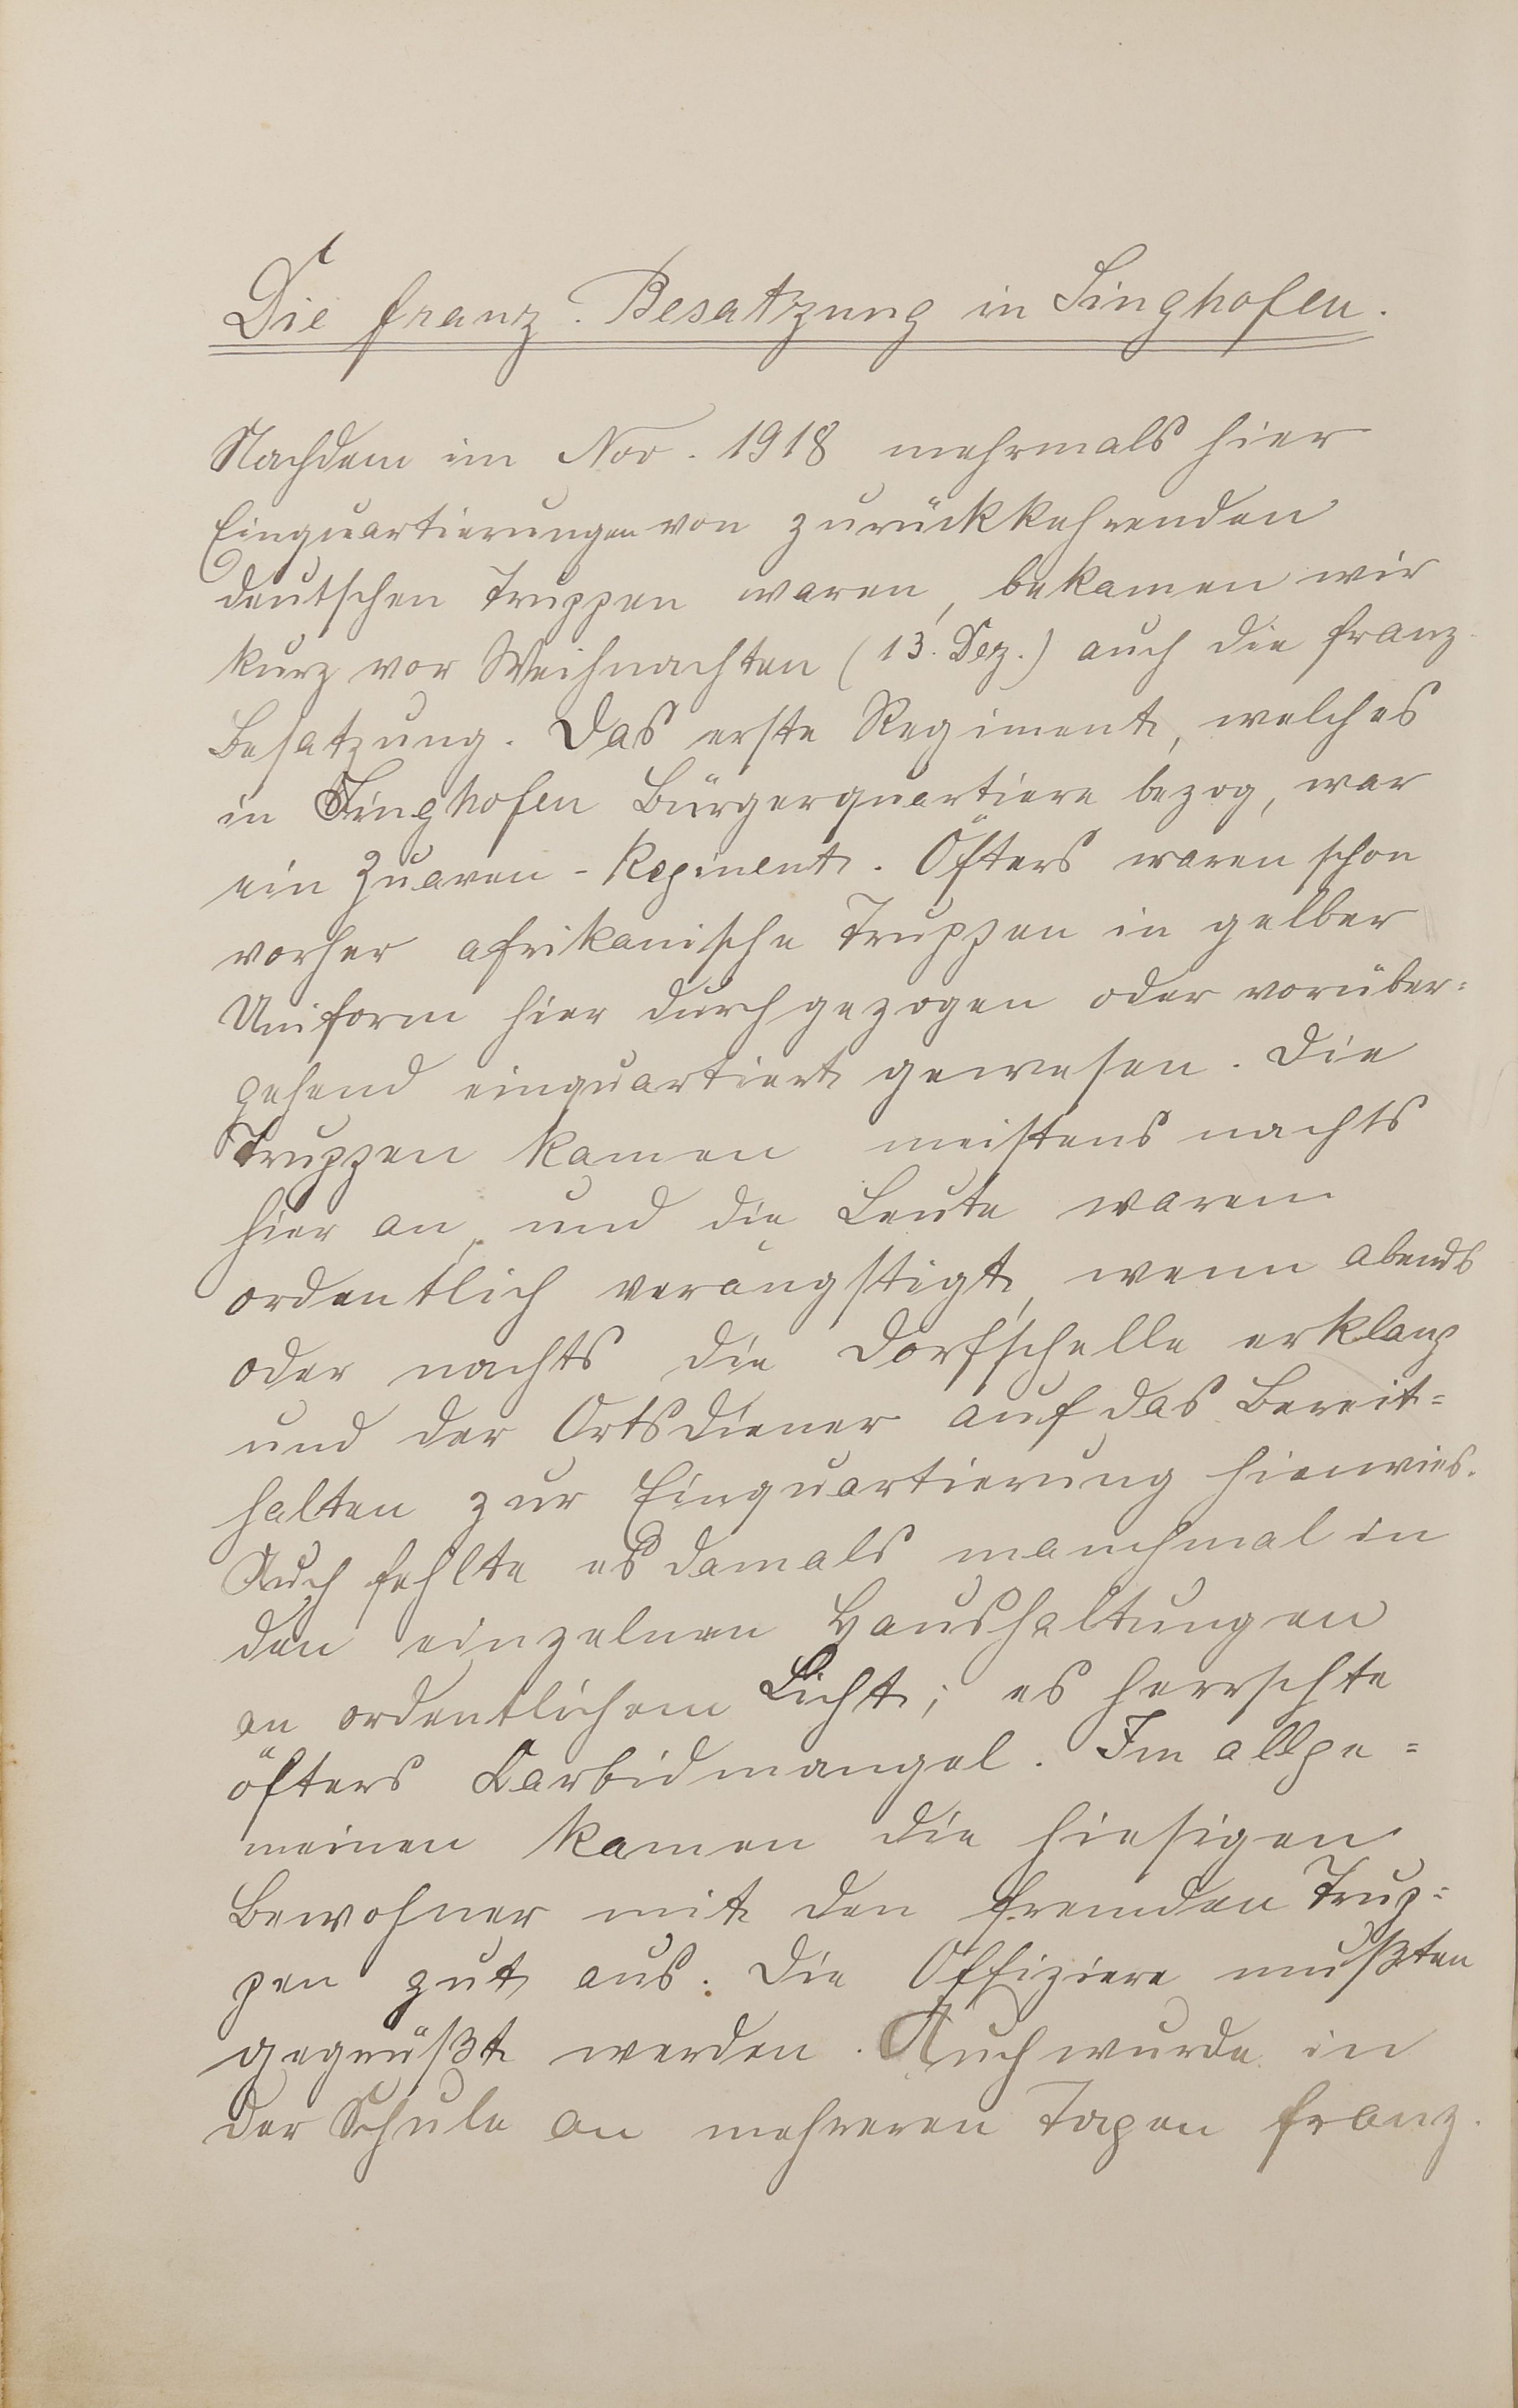 Die franz. Besatzung in Singhofen.
Nachdem im Nov. 1918 mehrmals hier
Einquartierungen von zurückkehrenden
deutschen Truppen waren, bekamen wir
kurz vor Weihnachten (13. Dez.) auch die franz.
Besatzung. Das erste Regiment, welches
in Singhofen Bürgerquartiere bezog, war
ein Zuaven-Regiment. Öfters waren schon
vorher afrikanische Truppen in gelber
Uniform hier durchgezogen oder vorüber=
gehend einquartiert gewesen. Die
Truppen kamen meistens nachts
hier an, und die Leute waren
ordentlich verängstigt, wenn abends
oder nachts die Dorfschelle erklang
und der Ortsdiener auf das Bereit=
halten zur Einquartierung hinwies.
Auch fehlte es damals manchmal in
den einzelnen Haushaltungen
an ordentlichem Licht; es herrschte
öfters Carbidmangel. Im allge=
meinen kamen die hiesigen
Bewohner mit den fremden Trup=
pen gut aus. Die Offiziere mußten
gegrüßt werden. Auch wurde in
der Schule an mehreren Tagen franz.